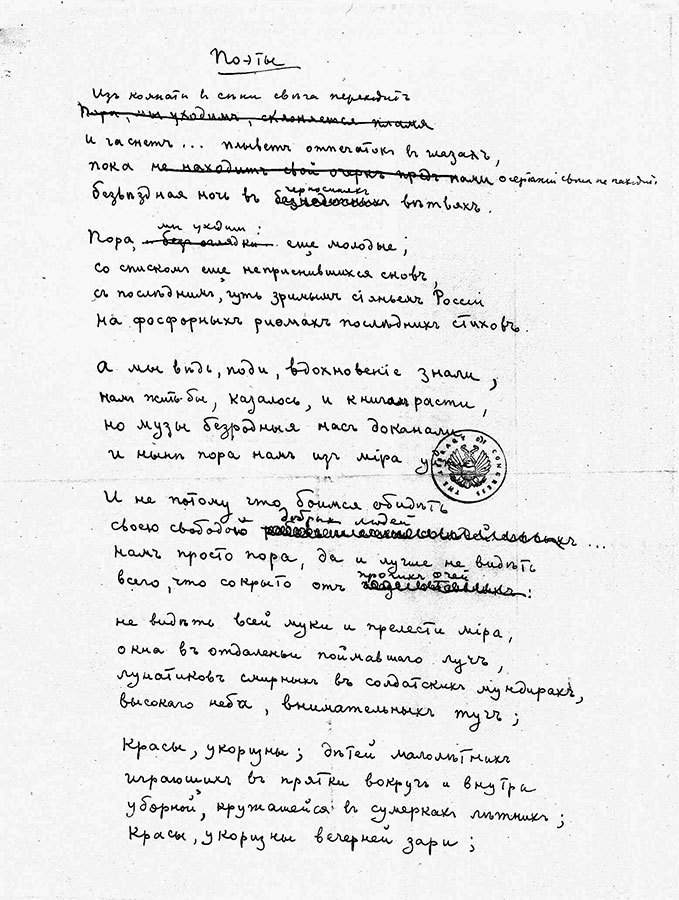 Поэты
Изъ комнаты в сѣни свѣча переходитъ
Пора, мы уходимъ, склоняется пламя
и гаснетъ... плыветъ отпечатокъ в глазахъ,
пока не находитъ свой очеркъ предъ нами очертаній своихъ не находитъ
черносинихъ
беззвѣздная ночь въ вѣтвяхъ.
мы уходимъ:
Пора, безъ оглядки еще молодые;
со спискомъ еще неприснившихся сновъ,
съ послѣднимъ, чуть зримымъ сіяньемъ Россіи
на фосфорныхъ риѳмахъ послѣднихъ стиховъ.
А мы вѣдь, поди, вдохновеніе знали,
намъ жить бы, казалось, и книгамъ расти,
но музы безродныя насъ доканали
и нынѣ пора намъ изъ міра
THE LIBRARY OF CONGRESS
И не потому что боимся обидѣть
добрыхъ людей
своею свободой ...
намъ просто пора, да и лучше не видѣть
прочихъ очей
всего, что сокрыто отъ :
не видѣть всей муки и прелести міра,
окна въ отдаленьи поймавшаго лучъ,
лунатиковъ смирныхъ въ солдатскихъ мундирахъ,
высокаго неба, внимательныхъ тучъ;
красы, укоризны; дѣтей малолѣтнихъ
играющихъ в прятки вокругъ и внутри
уборной, кружащейся в сумеркахъ лѣтнихъ;
красы, укоризны вечерней зари;